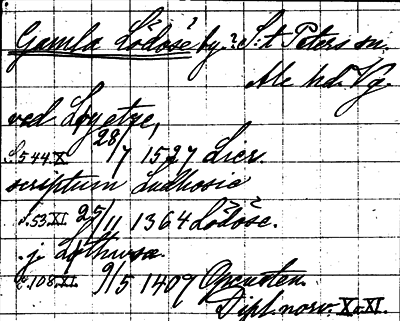 Gamla Lödöse by. ? S:t Peters sn.
Ale hd. Vg.
ved Løgetze,
S. 544. X 28/7 1527 Lier
scriptum Ludhosie
S. 53. XI 25/11 1364 Lödöse.
j Löthusa
S. 108. XI. 9/5 1407 Opensten.
Dipl. norv. X o. XI.